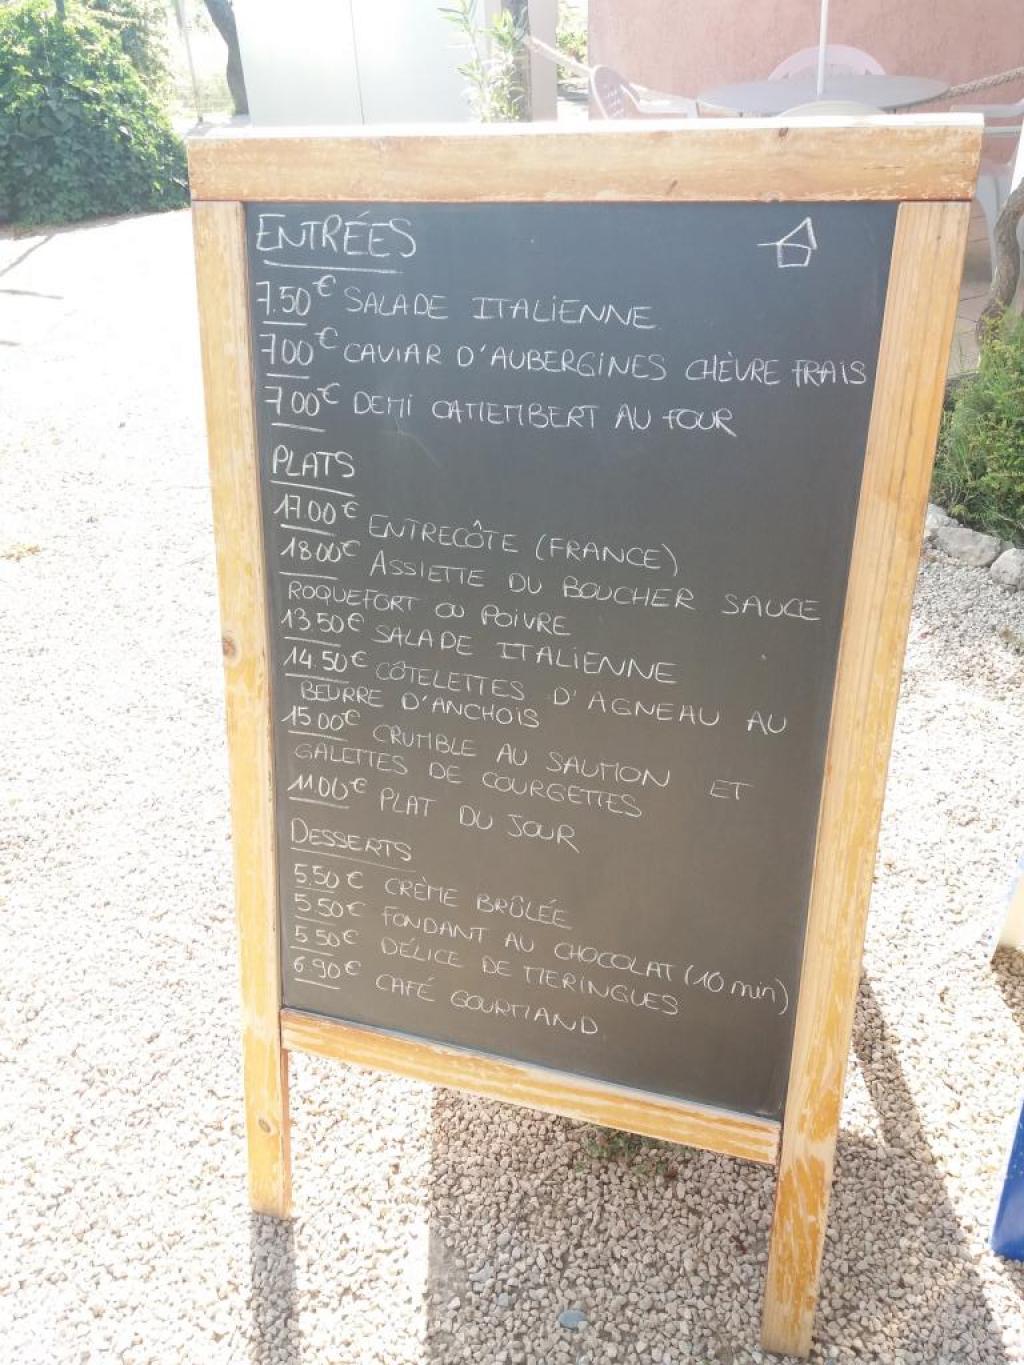 ENTRÉES
7.50€ SALADE ITALIENNE
7 00€ CAVIAR D'AUBERGINES CHÈVRE FRAIS
7 00€ DEMI CAMEMBERT AU FOUR
PLATS
17.00€ ENTRECÔTE (FRANCE)
18 00€ ASSIETTE DU BOUCHER SAUCE
ROQUEFORT OU POIVRE
13.50€ SALADE ITALIENNE
14.50€ CÔTELETTES D'AGNEAU AU
BEURRE D'ANCHOIS
15.00€ CRUMBLE AU SAUMON ET
GALETTES DE COURGETTES
11.00€ PLAT DU JOUR
DESSERTS
5.50€ CRÈME BRÛLÉE
5.50€ FONDANT AU CHOCOLAT (10 min)
5.50€ DÉLICE DE MERINGUES
6.90€ CAFÉ GOURMAND